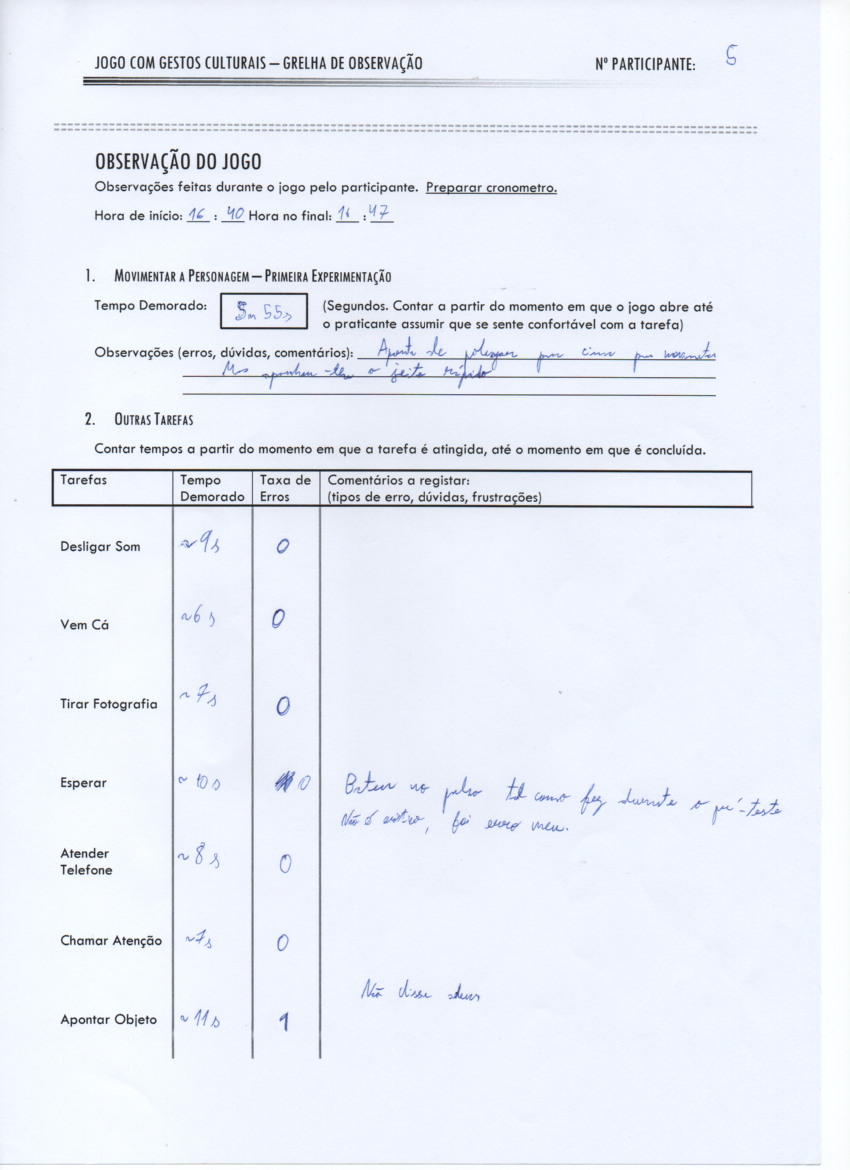 JOGO COM GESTOS CULTURAIS – GRELHA DE OBSERVAÇÃO Nº PARTICIPANTE: 5
OBSERVAÇÃO DO JOGO
Observações feitas durante o jogo pelo participante. Preparar cronometro.
Hora de início: 16 : 40 Hora no final: 16 : 47
1. MOVIMENTAR A PERSONAGEM – PRIMEIRA EXPERIMENTAÇÃO
Tempo Demorado: 5m 55s (Segundos. Contar a partir do momento em que o jogo abre até
o praticante assumir que se sente confortável com a tarefa)
Observações (erros, dúvidas, comentários): Aponta de polegar por cima
Mas apanhou-lhe o jeito rápido
2. OUTRAS TAREFAS
Contar tempos a partir do momento em que a tarefa é atingida, até o momento em que é concluída.
Tarefas Tempo Demorado Taxa de Erros Comentários a registar:
(tipos de erro, dúvidas, frustrações)
Desligar Som ~9s 0
Vem Cá ~6s 0
Tirar Fotografia ~7s 0
Esperar ~10s 0 Bateu no pulso tal como fez durante o pré-teste
Não é, foi erro meu.
Atender Telefone ~8s 0
Chamar Atenção ~7s 0
Não disse adeus
Apontar Objeto ~11s 1